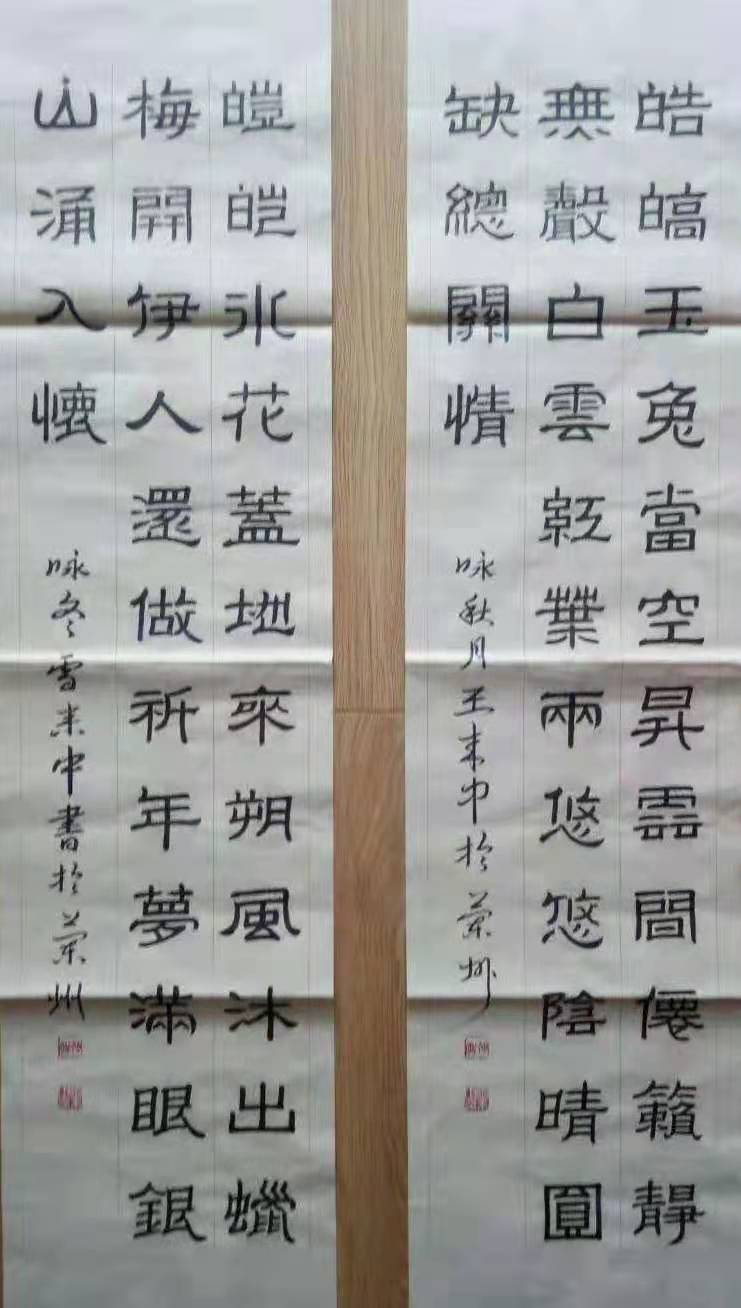 皓皜玉兔當空昇雲間僊籟靜
無聲白雲紅葉兩悠悠陰晴圓
缺總關情
咏秋月王來中於蘭州
皚皑冰花蓋地來朔風沐出蠟
梅開伊人還做祈年夢滿眼銀
山涌入懷
咏冬雪來中書於蘭州